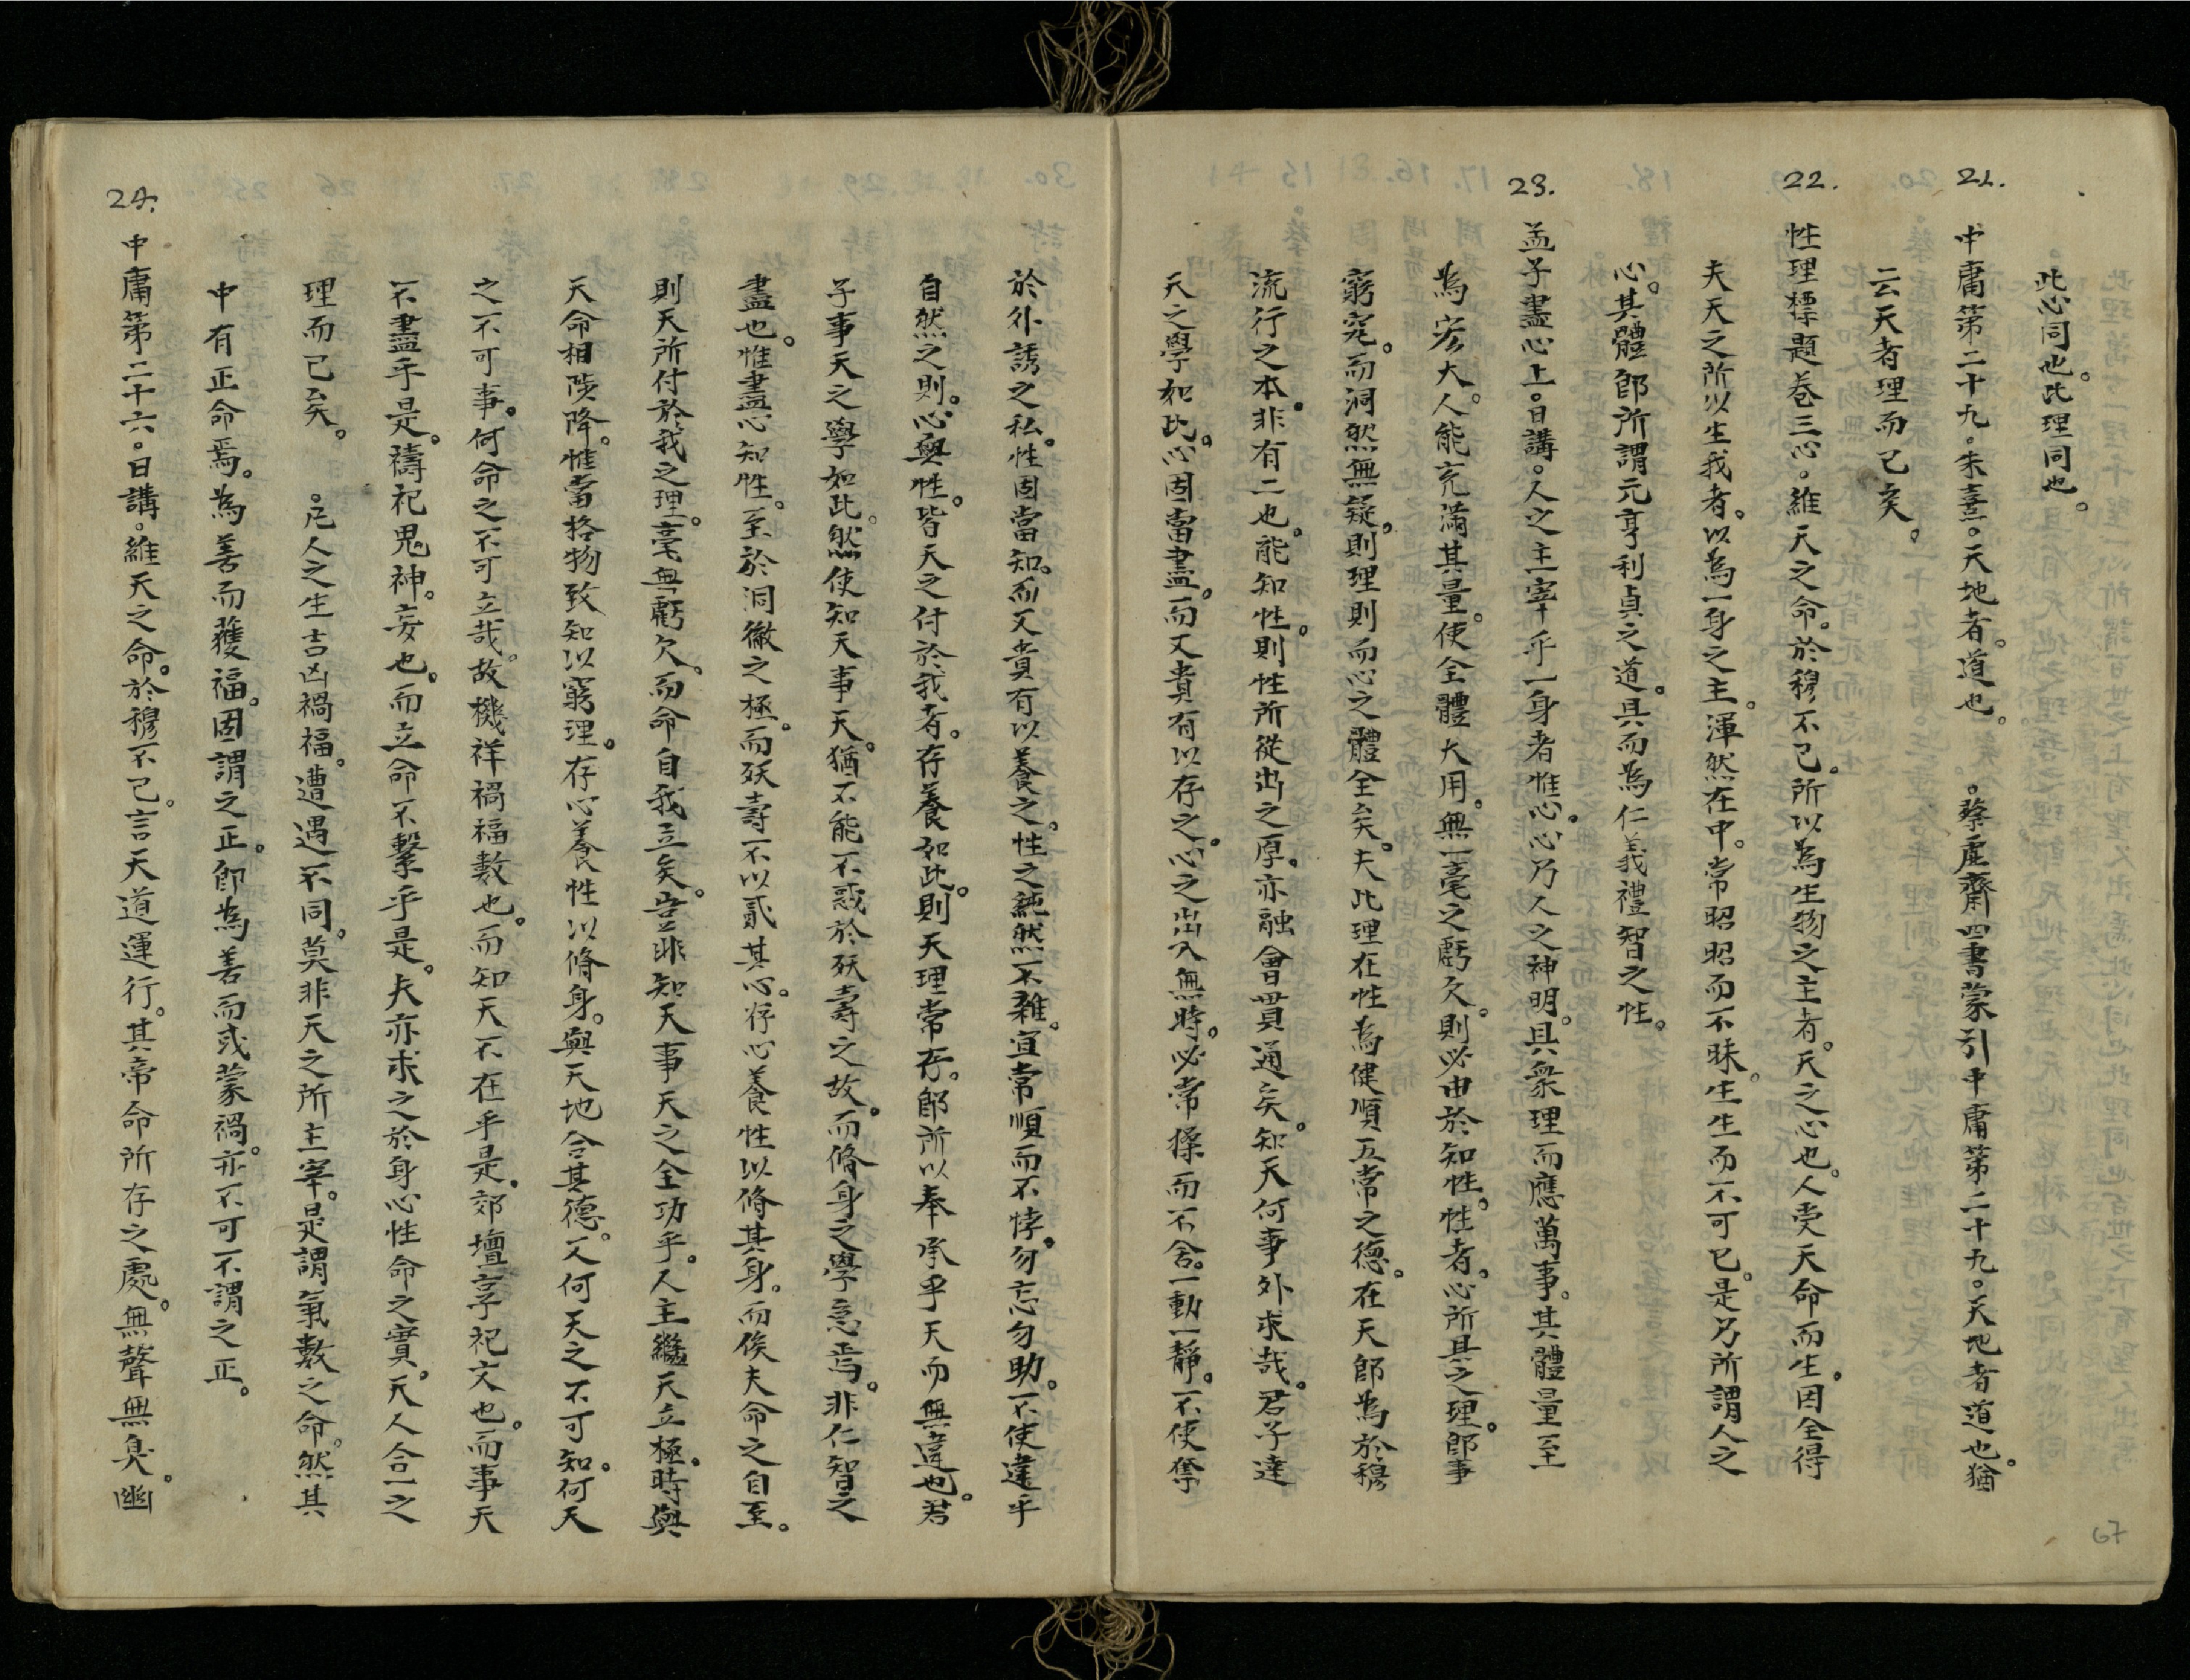 此心同也。此理同也。
21. 中庸第二十九。朱熹。天地者。道也。 。蔡虛齋四書蒙引中庸第二十九。天地者道也。猶
云天者理而已矣。
22. 性理標題卷三心。維天之命。於穆不已。所以為生物之主者。天之心也。人受天命而生。因全得
夫天之所以生我者。以為一身之主。渾然在中。常昭昭而不昧。生生而不可已。是乃所謂人之
心。其體卽所謂元亨利貞之道。具而為仁義禮智之性。
23. 孟子盡心上。日講。人之主宰乎一身者惟心。心乃人之神明。具衆理而應萬事。其體量至
為宏大。人能充滿其量。使全體大用。無一毫之虧欠。則必由於知性。性者。心所具之理。卽事
窮究。而洞然無疑。則理則而心之體全矣。夫此理在性為健順五常之德。在天卽為於穆
流行之本。非有二也。能知性。則性所從出之原。亦融會貫通矣。知天何事外求哉。君子達
天之學如此。心固當盡。而又貴有以存之。心之出入無時。必常操而不舍。一動一靜。不使奪
於外誘之私。性固當知。而又貴有以養之。性之純然不雜。宜常順而不悖。勿忘勿助。不使違乎
自然之則。心與性。皆天之付於我者。存養如此。則天理常存。卽所以奉承乎天而無違也。君
子事天之學如此。然使知天事天。猶不能不惑於殀壽之故。而脩身之學怠焉。非仁智之
盡也。惟盡心知性。至於洞徹之極。而殀壽不以貳其心。存心養性以脩其身。而俟夫命之自至。
則天所付於我之理。毫無虧欠。而命自我立矣。豈非知天事天之全功乎。人主繼天立極。時與
天命相陟降。惟當格物致知以窮理。存心養性以脩身。與天地合其德。又何天之不可知。何天
之不可事。何命之不可立哉。故機祥禍福數也。而知天不在乎是。郊壇享祀文也。而事天
不盡乎是。禱祀鬼神。妄也。而立命不繫乎是。夫亦求之於身心性命之實。天人合一之
理而已矣。 。凡人之生吉凶禍福。遭遇不同。莫非天之所主宰。是謂氣數之命。然其
中有正命焉。為善而獲福。固謂之正。卽為善而或蒙禍。亦不可不謂之正。
24. 中庸第二十六。日講。維天之命。於穆不已。言天道運行。其帝命所存之處。無聲無臭。幽
67